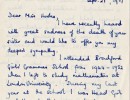 Sept. 21st, 1971
Dear Miss Hooke,
I have recently heard
with great sadness of the death of your
sister and I would like to offer you my
deepest sympathy.
I attended Bradford
Girls Grammar School from 1960 - 1970
when I left to study mathematics at
London University. During my last
year at the school I was Head Girl